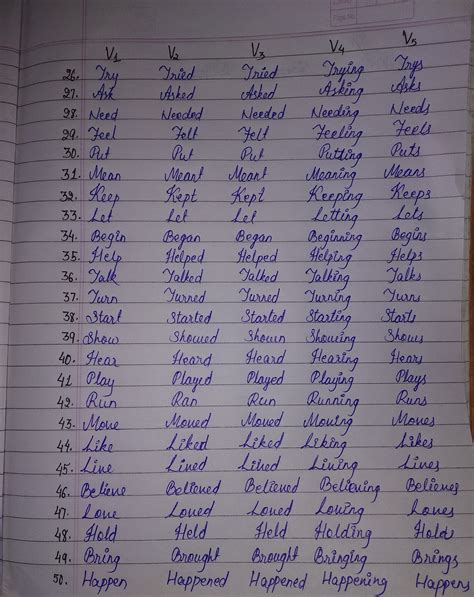 Page No.
V1 V2 V3 V4 V5
26. Try Tried Tried Trying Trys
27. Ask Asked Asked Asking Asks
28. Need Needed Needed Needing Needs
29. Feel Felt Felt Feeling Feels
30. Put Put Put Putting Puts
31. Mean Meant Meant Meaning Means
32. Keep Kept Kept Keeping Keeps
33. Let Let Let Letting Lets
34. Begin Began Began Beginning Begins
35. Help Helped Helped Helping Helps
36. Talk Talked Talked Talking Talks
37. Turn Turned Turned Turning Turns
38. Start Started Started Starting Starts
39. Show Showed Shown Showing Shows
40. Hear Heard Heard Hearing Hears
41 Play Played Played Playing Plays
42. Run Ran Run Running Runs
43. Move Moved Moved Moving Moves
44. Like Liked Liked Liking Likes
45. Live Lived Lived Living Lives
46. Believe Believed Believed Believing Believes
47. Love Loved Loved Loving Loves
48. Hold Held Held Holding Holds
49. Bring Brought Brought Bringing Brings
50. Happen Happened Happened Happening Happens